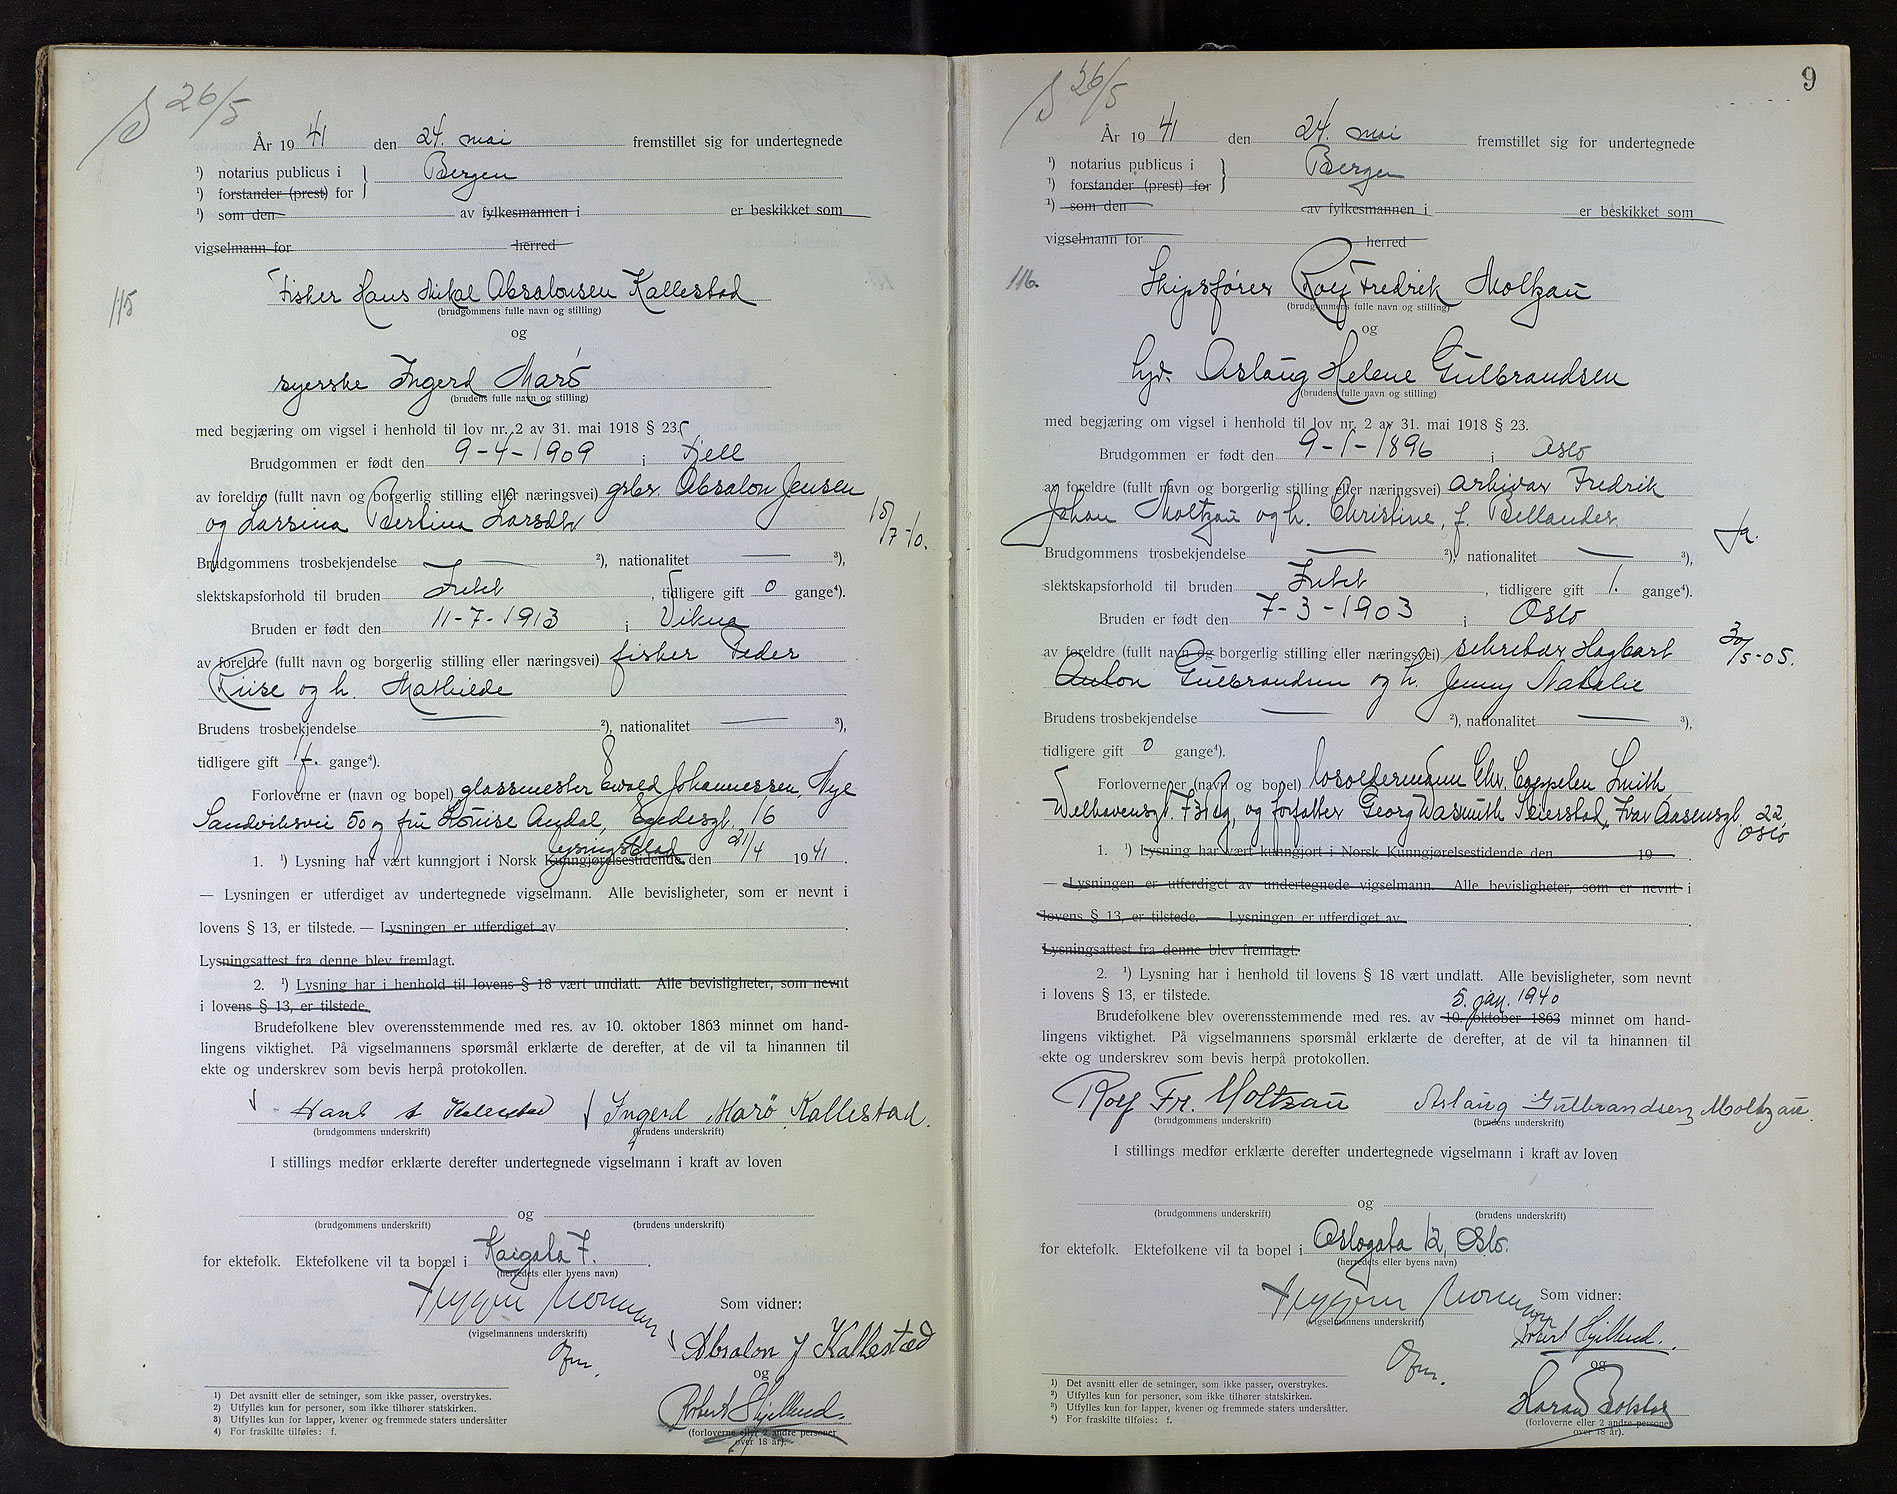 26/5
År 19 41 den 24. mai fremstillet sig for undertegnede
¹) notarius publicus i } Bergen
¹) forstander (prest) for
¹) som den av fylkesmannen i er beskikket som
vigselmann for herred
115
Fisker Hans Mikal Absalonsen Kallestad
(brudgommens fulle navn og stilling)
og
syerske Ingerd Marö
(brudens fulle navn og stilling)
med begjæring om vigsel i henhold til lov nr. 2 av 31. mai 1918 § 23.
Brudgommen er født den 9-4-1909 i Fjell
av foreldre (fullt navn og borgerlig stilling eller næringsvei) grbr. Absalon Jensen
og Larsina Bertina Larsdtr
15/7-10.
Brudgommens trosbekjendelse — ²), nationalitet — ³),
slektskapsforhold til bruden Intet, tidligere gift 0 gange⁴).
Bruden er født den 11-7-1913 i Vikna
av foreldre (fullt navn og borgerlig stilling eller næringsvei) fisker Peder
Riise og h. Mathilde
Brudens trosbekjendelse — ²), nationalitet — ³),
tidligere gift 1 f. gange⁴).
Forloverne er (navn og bopel) glassmester Ewald Johannessen, Nye
Sandviksvei 50 og fru Louise Andal, Egedesgt. 16
1. ¹) Lysning har vært kunngjort i Norsk Kunngjørelsestidende lysingsblad den 21/4 19 41.
— Lysningen er utferdiget av undertegnede vigselmann. Alle bevisligheter, som er nevnt i
lovens § 13, er tilstede. — Lysningen er utferdiget av
Lysningsattest fra denne blev fremlagt.
2. ¹) Lysning har i henhold til lovens § 18 vært undlatt. Alle bevisligheter, som nevnt
i lovens § 13, er tilstede.
Brudefolkene blev overensstemmende med res. av 10. oktober 1863 minnet om hand-
lingens viktighet. På vigselmannens spørsmål erklærte de derefter, at de vil ta hinannen til
ekte og underskrev som bevis herpå protokollen.
Hans A Kallestad Ingerd Marø Kallestad.
(brudgommens underskrift) (brudens underskrift)
I stillings medfør erklærte derefter undertegnede vigselmann i kraft av loven
og
(brudgommens underskrift) (brudens underskrift)
for ektefolk. Ektefolkene vil ta bopæl i Kaigata 7.
(herredets eller byens navn)
Som vidner:
(vigselmannens underskrift)
Absalon J Kallestad
og
Robert Hjellund.
(forloverne eller 2 andre personer
over 18 år).
¹) Det avsnitt eller de setninger, som ikke passer, overstrykes.
²) Utfylles kun for personer, som ikke tilhører statskirken.
³) Utfylles kun for lapper, kvener og fremmede staters undersåtter
⁴) For fraskilte tilføies: f.
9
26/5
År 19 41 den 24. mai fremstillet sig for undertegnede
¹) notarius publicus i } Bergen
¹) forstander (prest) for
¹) som den av fylkesmannen i er beskikket som
vigselmann for herred
116.
Skipsfører Rolf Fredrik Moltzau
(brudgommens fulle navn og stilling)
og
Aslaug Helene Gulbrandsen
(brudens fulle navn og stilling)
med begjæring om vigsel i henhold til lov nr. 2 av 31. mai 1918 § 23.
Brudgommen er født den 9-1-1896 i Oslo
av foreldre (fullt navn og borgerlig stilling eller næringsvei) arkivar Fredrik
Johan Moltzau og h. Christine, f. Bellander
ja.
Brudgommens trosbekjendelse — ²), nationalitet — ³),
slektskapsforhold til bruden Intet, tidligere gift 1. gange⁴).
Bruden er født den 7-3-1903 i Oslo
av foreldre (fullt navn og borgerlig stilling eller næringsvei) sekretær Hagbart
Anton Gulbrandsen og h. Jenny Natalie
30/5-05.
Brudens trosbekjendelse — ²), nationalitet — ³),
tidligere gift 0 gange⁴).
Forloverne er (navn og bopel) losoldermann Chr. Cappelen Smith,
Welhavensgt. 73, og forfatter Georg Wasmuth Seierstad, Ivar Aasensgt 22
Oslo
1. ¹) Lysning har vært kunngjort i Norsk Kunngjørelsestidende den 19 .
— Lysningen er utferdiget av undertegnede vigselmann. Alle bevisligheter, som er nevnt i
lovens § 13, er tilstede. — Lysningen er utferdiget av
Lysningsattest fra denne blev fremlagt.
2. ¹) Lysning har i henhold til lovens § 18 vært undlatt. Alle bevisligheter, som nevnt
i lovens § 13, er tilstede.
5. jan. 1940
Brudefolkene blev overensstemmende med res. av 10. oktober 1863 minnet om hand-
lingens viktighet. På vigselmannens spørsmål erklærte de derefter, at de vil ta hinannen til
ekte og underskrev som bevis herpå protokollen.
Rolf Fr. Moltzau Aslaug Gulbrandsen Moltzau.
(brudgommens underskrift) (brudens underskrift)
I stillings medfør erklærte derefter undertegnede vigselmann i kraft av loven
og
(brudgommens underskrift) (brudens underskrift)
for ektefolk. Ektefolkene vil ta bopel i Oslogata 12, Oslo.
(herredets eller byens navn)
Som vidner:
(vigselmannens underskrift)
Robert Hjellund.
og
(forloverne eller 2 andre personer
over 18 år).
¹) Det avsnitt eller de setninger, som ikke passer, overstrykes.
²) Utfylles kun for personer, som ikke tilhører statskirken.
³) Utfylles kun for lapper, kvener og fremmede staters undersåtter.
⁴) For fraskilte tilføies: f.